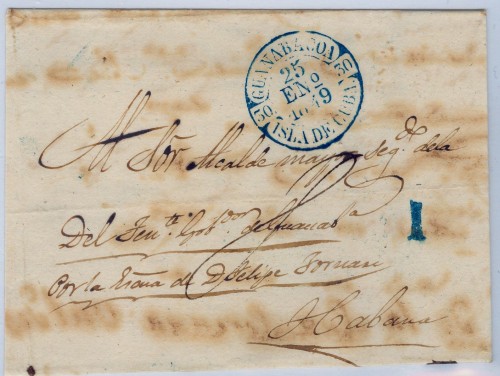 GUANABACOA
25
EN.º
1849
ISLA DE CUBA
Al Sōr. Alcalde mayor Seg.do de la
1
Del Ten.te Gob.or de Guanab.a
Por la Escña de D. Felipe Fornari
Habana